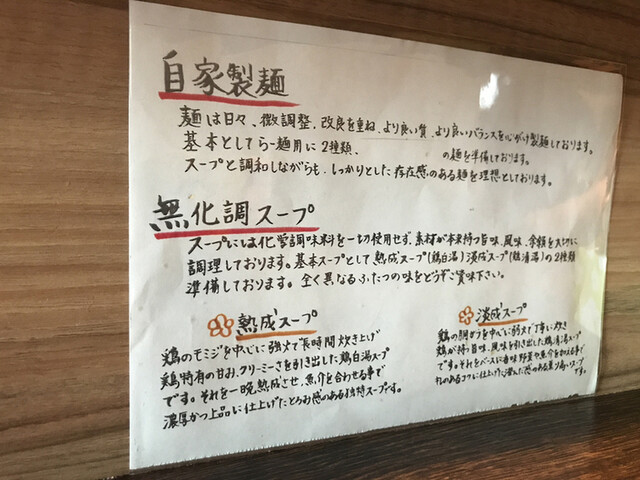 自家製麺
麺は日々、微調整、改良を重ね、より良い質、より良いバランスを心がけ製麺しております。
基本としてらー麺用に2種類、 の麺を準備しております。
スープと調和しながらも、しっかりとした存在感のある麺を理想としております。
無化調スープ
スープには化学調味料を一切使用せず、素材が本来持つ旨味、風味、余韻を大切に
調理しております。基本スープとして熟成スープ(鶏白湯)淡成スープ(鶏清湯)の2種類
準備しております。全く異なるふたつの味をどうぞご賞味下さい。
熟成スープ
鶏のモミジを中心に強火で長時間炊き上げ
鶏特有の甘み、クリーミーさを引き出した鶏白湯スープ
です。それを一晩熟成させ、魚介を合わせる事で
濃厚かつ上品に仕上げたとろみ感のある独特スープです。
淡成スープ
鶏の胴ガラを中心に弱火で丁寧に炊き
鶏が持つ旨味、風味を引き出した鶏清湯スープ
です。それをベースに香味野菜や魚介を加える事で
のあるコクに仕上げた澄んだ感のある薫り高いスープです。